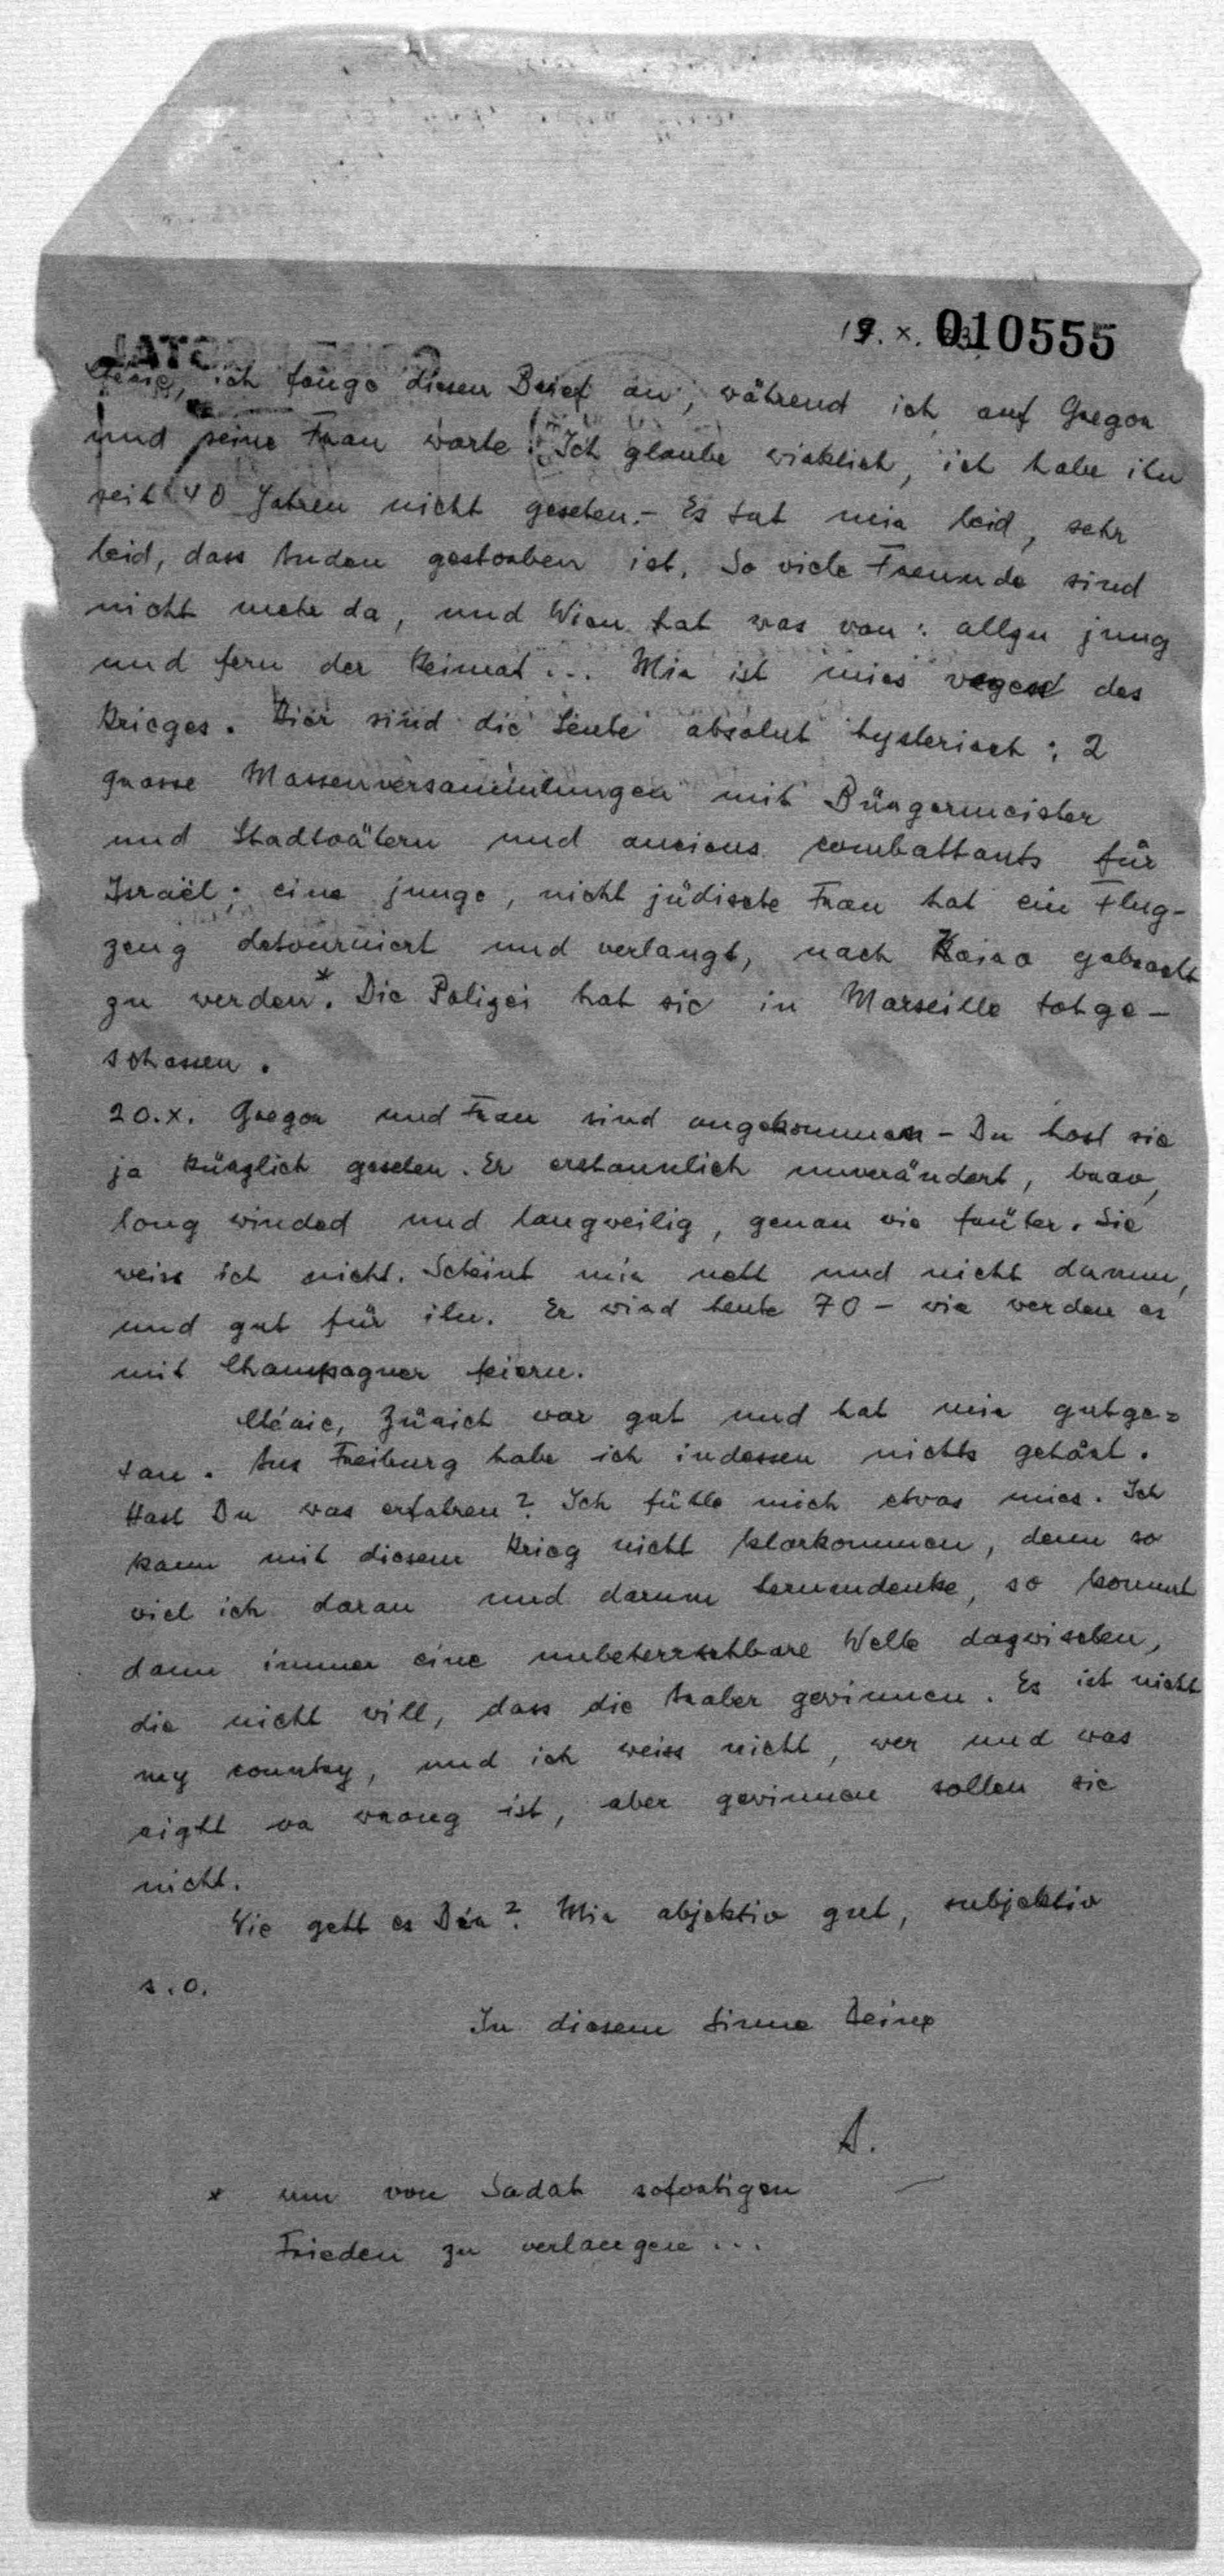 19. X. 010555
ich fange diesen Brief an, während ich auf Gregor
und seine Frau warte. Ich glaube wirklich, ich habe ihn
seit 40 Jahren nicht gesehen. – Es tut mir leid, sehr
leid, dass Auden gestorben ist. So viele Freunde sind
nicht mehr da, und Wien hat was von: allzu jung
und fern der Heimat... Mir ist mies wegen des
Krieges. Hier sind die Leute absolut hysterisch: 2
grosse Massenversammlungen mit Bürgermeister
und Stadtvätern und anciens combattants für
Israël; eine junge, nicht jüdische Frau hat ein Flug-
zeug detourniert und verlangt, nach Kairo gebracht
zu werden*. Die Polizei hat sie in Marseille totge-
schossen.
20.X. Gregor und Frau sind angekommen – Du hast sie
ja kürzlich gesehen. Er erstaunlich unverändert, brav,
long winded und langweilig, genau wie früher. Sie
weiss ich nicht. Scheint mir nett und nicht dumm,
und gut für ihn. Er wird heute 70 – wir werden es
mit Champagner feiern.
Chérie, Zürich war gut und hat mir gutge=
tan. Aus Freiburg habe ich indessen nichts gehört.
Hast Du was erfahren? Ich fühle mich etwas mies. Ich
kann mit diesem Krieg nicht klarkommen, denn so
viel ich daran und darum herumdenke, so kommt
dann immer eine unbeherrschbare Welle dazwischen,
die nicht will, dass die Araber gewinnen. Es ist nicht
my country, und ich weiss nicht, wer und was
right or wrong ist, aber gewinnen sollen sie
nicht.
Wie geht es Dir? Mir objektiv gut, subjektiv
s.o.
In diesem Sinne Deine
A.
* um von Sadat sofortigen
Frieden zu verlangen...